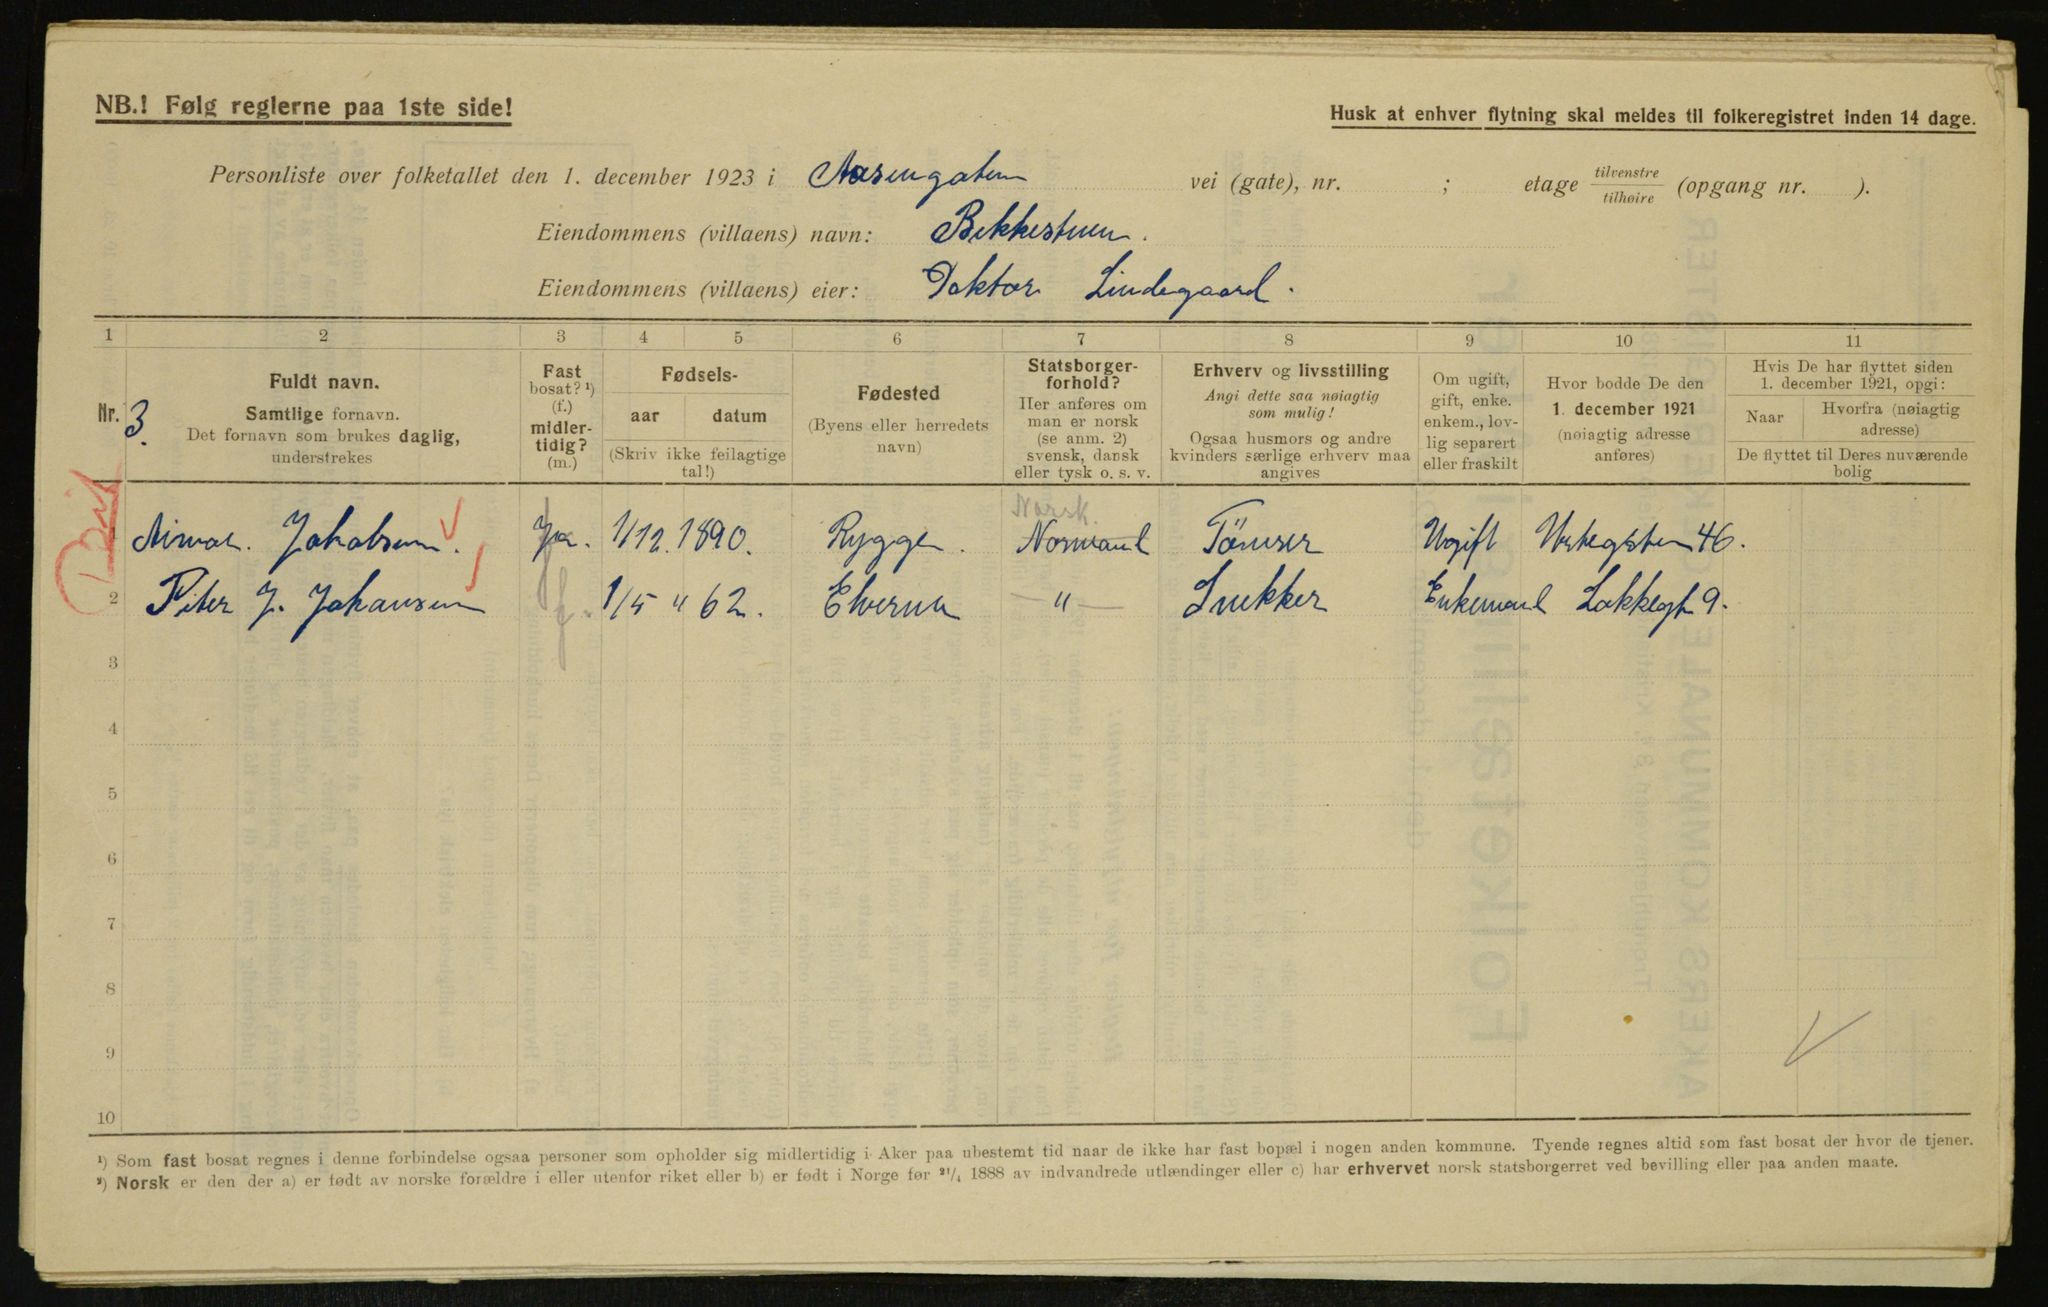 NB.! Følg reglerne paa 1ste side!
Husk at enhver flytning skal meldes til folkeregistret inden 14 dage.
Personliste over folketallet den 1. december 1923 i Aasengaten vei (gate), nr. ; etage tilvenstre / tilhøire (opgang nr. ).
Eiendommens (villaens) navn: Bekkestuen.
Eiendommens (villaens) eier: Doktor Lindegaard.
1 2 3 4 5 6 7 8 9 10 11
Nr. 3.
Fuldt navn.
Samtlige fornavn.
Det fornavn som brukes daglig,
understrekes
Fast
bosat? ¹)
(f.)
midler-
tidig?
(m.)
Fødsels-
aar datum
(Skriv ikke feilagtige
tal!)
Fødested
(Byens eller herredets
navn)
Statsborger-
forhold?
Her anføres om
man er norsk
(se anm. 2)
svensk, dansk
eller tysk o. s. v.
Erhverv og livsstilling
Angi dette saa nøiagtig
som mulig!
Ogsaa husmors og andre
kvinders særlige erhverv maa
angives
Om ugift,
gift, enke.
enkem., lov-
lig separert
eller fraskilt
Hvor bodde De den
1. december 1921
(nøiagtig adresse
anføres)
Hvis De har flyttet siden
1. december 1921, opgi:
Naar
Hvorfra (nøiagtig
adresse)
De flyttet til Deres nuværende
bolig
Norsk.
1 Jakobsen. Ja. 1/12. 1890. Rygge. Normand Tømrer Ugift 46.
2 Peter J. Johansen f. 1/5 " 62. Elverum — " — Snekker Enkemand Lakkegt 9.
3
4
5
6
7
8
9
10
¹) Som fast bosat regnes i denne forbindelse ogsaa personer som opholder sig midlertidig i Aker paa ubestemt tid naar de ikke har fast bopæl i nogen anden kommune. Tyende regnes altid som fast bosat der hvor de tjener.
²) Norsk er den der a) er født av norske forældre i eller utenfor riket eller b) er født i Norge før ²¹/₄ 1888 av indvandrede utlændinger eller c) har erhvervet norsk statsborgerret ved bevilling eller paa anden maate.